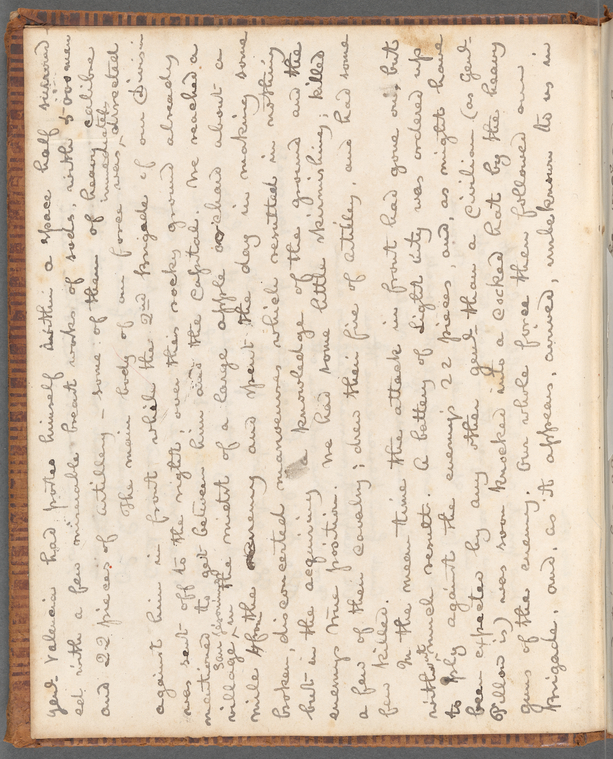 genl Valencia had posted himself within a space half surround-
ed with a few miserable breast works of sods, with 5000 men
and 22 pieces of artillery – some of them of heavy calibre
The main body of our force was immediately directed
against him in front while the 2nd Brigade of our Division
was sent off to the right, over this rocky ground already
mentioned to get between him and the Capital. We reached a
village, San Geronimo in the midst of a large apple orchard about a
mile from the enemy and spent the day in making some
broken, disconcerted manoeuvres which resulted in nothing
but in the acquiring a knowledge of the ground and the
enemys true position. We had some little skirmishing; killed
a few of their cavalry; drew their fire of artillery, and had some
few killed.
In the mean time the attack in front had gone on, but
without much result. A battery of Light arty was ordered up
to play against the enemy's 22 pieces, and, as might have
been expected by any other genl than a Civilian (as Genl
Pillow is) was soon knocked into a cocked hat by the heavy
guns of the enemy. Our whole force then followed our
Brigade, and, as it appears, arrived, unbeknown to us in